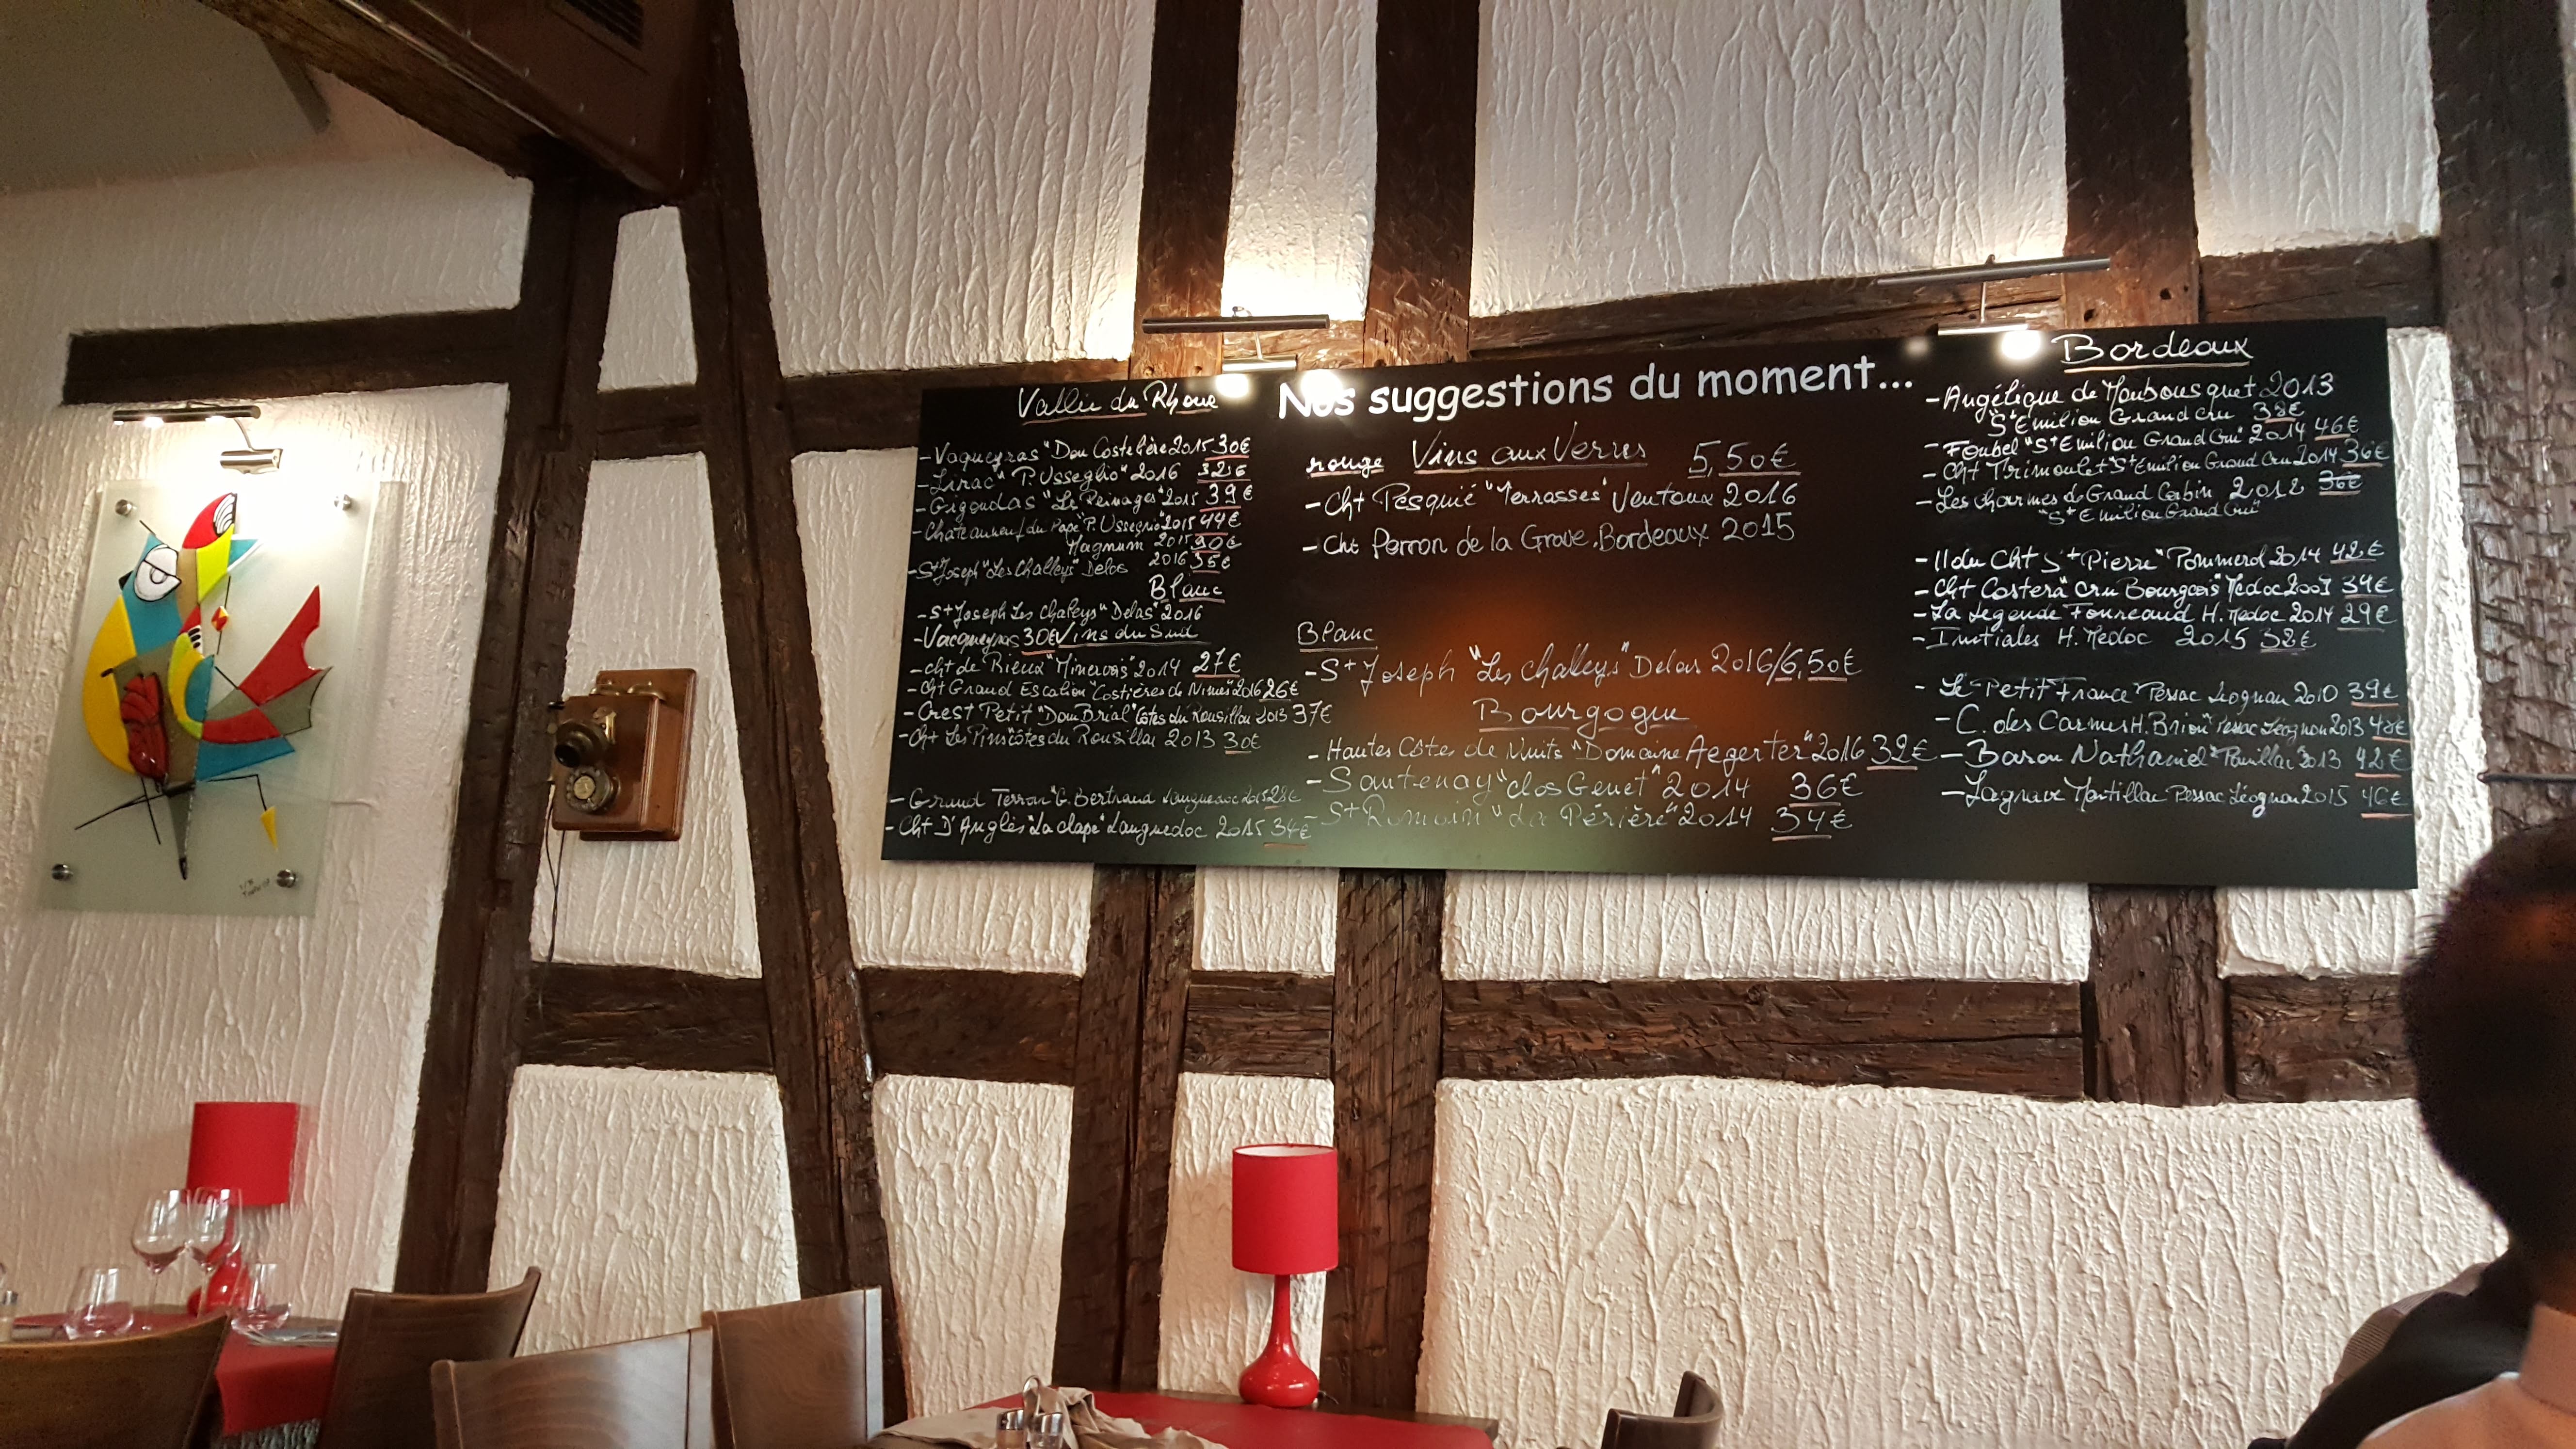 Nos suggestions du moment...
Vallée du Rhone
- Vaqueyras "Dou Costelière 2015 30€
- Lirac "P. Usseglio" 2016 32€
- Gigondas "Le Peinages" 2015 39€
- Chateauneuf du Pape "P. Usseglio" 2015 44€
Magnum 2015 90€
- St Joseph "Les Challeys" Delas 2016 35€
Blanc
- St Joseph Les Challeys "Delas" 2016
- Vacqueyras 30€ Vins du Sud
- Cht de Rieux "Minervois" 2014 27€
- Cht Grand Escalion "Costières de Nimes" 2016 26€
- Crest Petit "Dom Brial" Côtes du Roussillon 2013 37€
- Cht Les Pins côtes du Roussillon 2013 30€
- Grand Terroir "G. Bertrand Languedoc 2015 28€
- Cht D'Anglès "La clape" Languedoc 2015 34€
rouge Vins aux Verres 5,50€
- Cht Pesquié "Terrasses" Ventoux 2016
- Cht Perron de la Grave. Bordeaux 2015
Blanc
- St Joseph "Les Challeys" Delas 2016/6,50€
Bourgogne
- Hautes Côtes de Nuits "Domaine Aegerter" 2016 32€
- Santenay "clos Genet" 2014 36€
- St Romain "La Périère" 2014 34€
Bordeaux
- Angélique de Monbousquet 2013
St Emilion Grand cru 38€
- Fonbel "St Emilion Grand Cru" 2014 46€
- Cht Trimoulet "St Emilion Grand Cru 2014 36€
- Les charmes de Grand Corbin 2012 36€
"St Emilion Grand Cru"
- II du Cht St Pierre "Pommerol 2014 42€
- Cht Costera "cru Bourgeois" Medoc 34€
- La Légende Fonreaud H. Medoc 2014 29€
- Initiales H. Medoc 2015 32€
- Le Petit France Pessac Leognan 2010 39€
- C. des Carmes H. Brion "Pessac Léognan 2013 48€
- Baron Nathaniel "Pauillac 2013 42€
- Lagrave Martillac Pessac Léognan 2015 46€